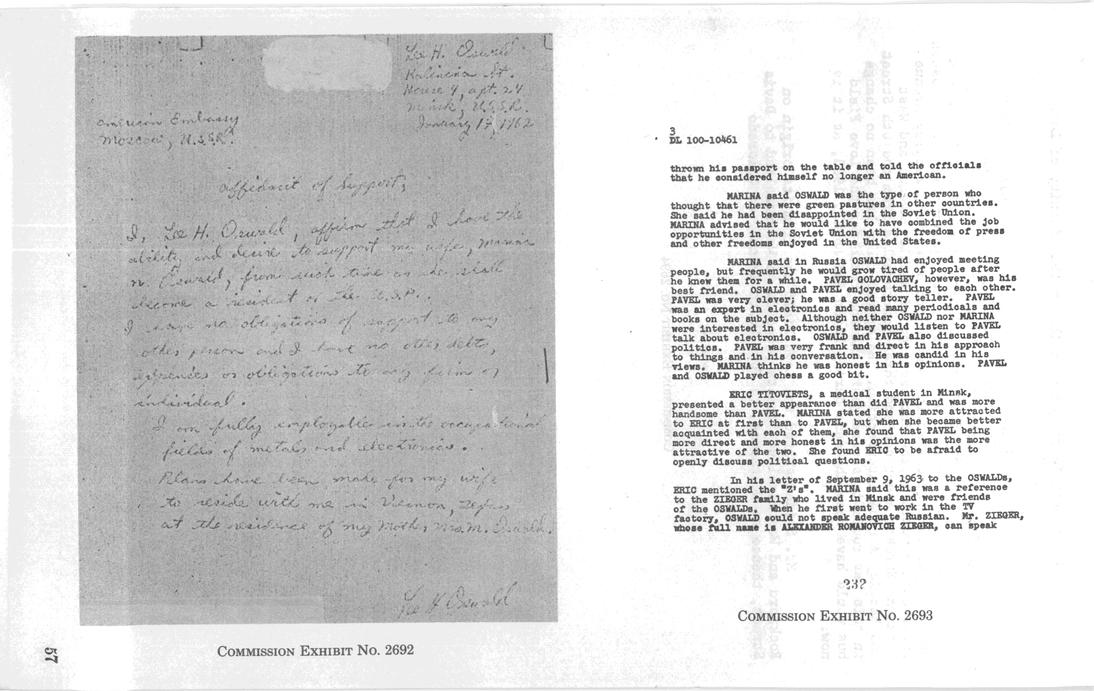 Lee H. Oswald
Kalinina St.
House 4, apt. 24
Minsk, U.S.S.R.
January 17, 1962
American Embassy
Moscow, U.S.S.R.
Affidavit of Support;
I, Lee H. Oswald, affirm that I have the
ability, and desire to support my wife, Marina
N. Oswald, from such time as she shall
become a resident of the U.S.A.
I have no obligations of support to any
other person and I have no other debts,
expences or obligations to any firm or
individual.
I am fully employable in the occupational
fields of metals and electronics.
Plans have been make for my wife
to reside with me in Vernon, Texas
at the residence of my Mother Mrs M. Oswald.
Lee H Oswald
57
COMMISSION EXHIBIT No. 2692
3
DL 100-10461
thrown his passport on the table and told the officials
that he considered himself no longer an American.
MARINA said OSWALD was the type of person who
thought that there were green pastures in other countries.
She said he had been disappointed in the Soviet Union.
MARINA advised that he would like to have combined the job
opportunities in the Soviet Union with the freedom of press
and other freedoms enjoyed in the United States.
MARINA said in Russia OSWALD had enjoyed meeting
people, but frequently he would grow tired of people after
he knew them for a while. PAVEL GOLOVACHEV, however, was his
best friend. OSWALD and PAVEL enjoyed talking to each other.
PAVEL was very clever; he was a good story teller. PAVEL
was an expert in electronics and read many periodicals and
books on the subject. Although neither OSWALD nor MARINA
were interested in electronics, they would listen to PAVEL
talk about electronics. OSWALD and PAVEL also discussed
politics. PAVEL was very frank and direct in his approach
to things and in his conversation. He was candid in his
views. MARINA thinks he was honest in his opinions. PAVEL
and OSWALD played chess a good bit.
ERIC TITOVIETS, a medical student in Minsk,
presented a better appearance than did PAVEL and was more
handsome than PAVEL. MARINA stated she was more attracted
to ERIC at first than to PAVEL, but when she became better
acquainted with each of them, she found that PAVEL being
more direct and more honest in his opinions was the more
attractive of the two. She found ERIC to be afraid to
openly discuss political questions.
In his letter of September 9, 1963 to the OSWALDs,
ERIC mentioned the "Z's". MARINA said this was a reference
to the ZIEGER family who lived in Minsk and were friends
of the OSWALDs. When he first went to work in the TV
factory, OSWALD could not speak adequate Russian. Mr. ZIEGER,
whose full name is ALEXANDER ROMANOVICH ZIEGER, can speak
232
COMMISSION EXHIBIT No. 2693